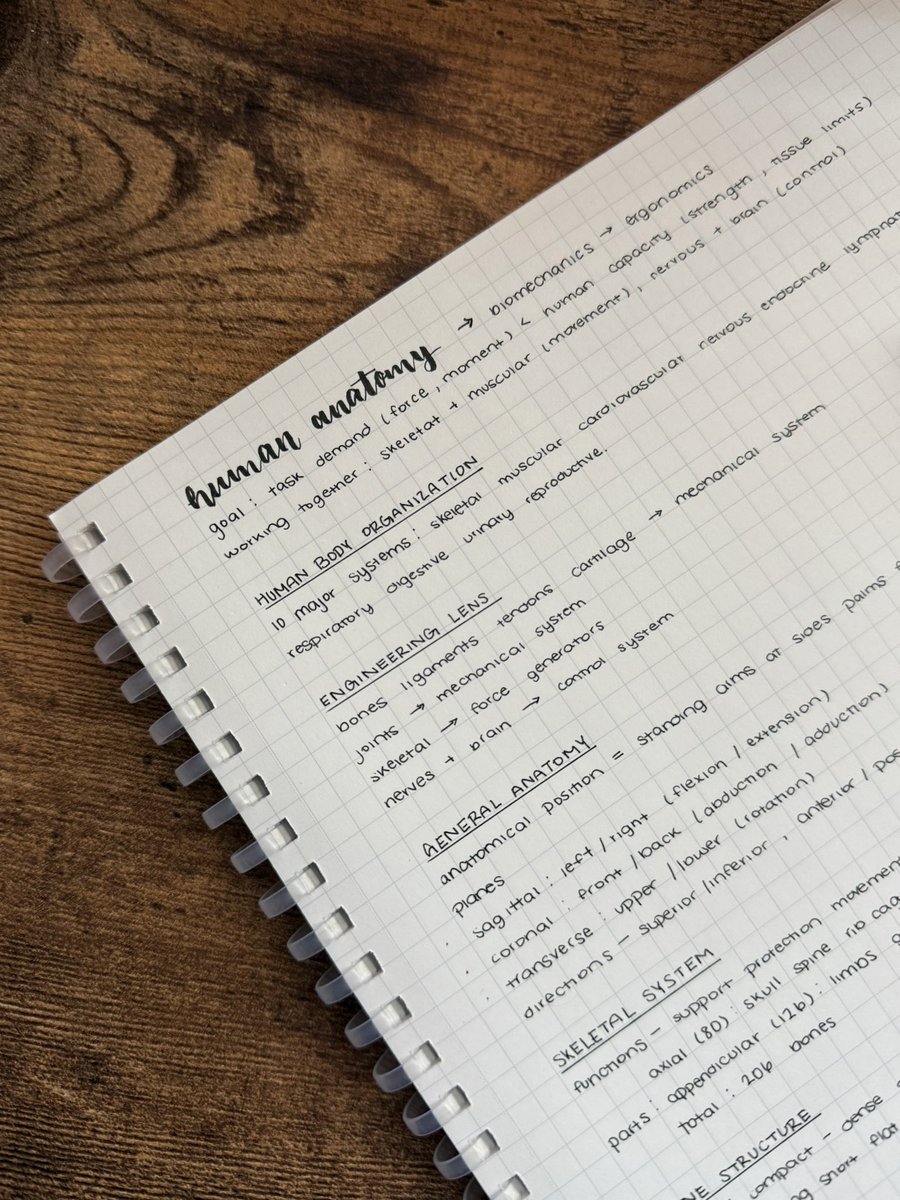 human anatomy → biomechanics → ergonomics
goal: task demand (force, moment) < human capacity (strength, tissue limits)
working together: skeletal + muscular (movement), nervous + brain (control)
HUMAN BODY ORGANIZATION
10 major systems: skeletal muscular cardiovascular nervous endocrine
respiratory digestive urinary reproductive.
ENGINEERING LENS
bones ligaments tendons cartilage → mechanical system
joints → mechanical system
skeletal → force generators
nerves + brain → control system
GENERAL ANATOMY
anatomical position = standing arms at sides palms
planes
· sagittal: left/right (flexion / extension)
· coronal: front/back (abduction / adduction)
· transverse: upper/lower (rotation)
directions - superior/inferior, anterior/
SKELETAL SYSTEM
functions - support protection movement
axial (80): skull spine rib
parts: appendicular (126): limbs
total: 206 bones
STRUCTURE
compact - dense
short flat